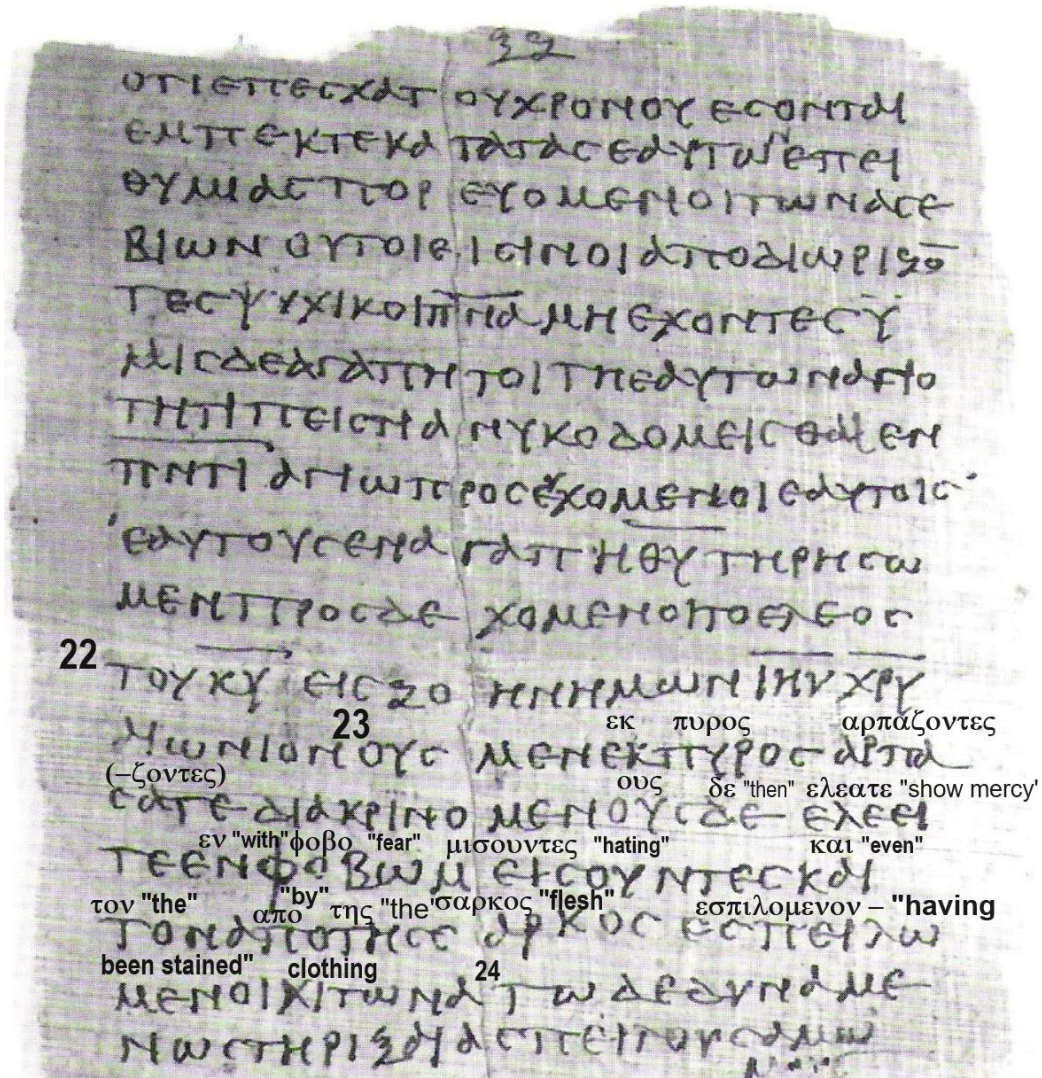 ΟΤΙ ΕΠ ΕΣΧΑΤΟΥ ΧΡΟΝΟΥ ΕΣΟΝΤΑΙ
ΕΜΠΕΚΤΕ ΚΑΤΑ ΤΑΣ ΕΑΥΤΩΝ ΕΠΕΙ
ΘΥΜΙΑΣ ΠΟΡΕΥΟΜΕΝΟΙ ΤΩΝ ΑΣΕ
ΒΙΩΝ ΟΥΤΟΙ ΕΙΣΙΝ ΟΙ ΑΠΟΔΙΩΡΙΖΟ̅
ΤΕΣ ΨΥΧΙΚΟΙ Π̅Ν̅Α̅ ΜΗ ΕΧΟΝΤΕΣ Ϋ
ΜΙΣ ΔΕ ΑΓΑΠΗΤΟΙ ΤΗ ΕΑΥΤΩΝ ΑΓΙΟ
ΤΗΤΙ ΠΕΙΣΤΙ ΑΝΥΚΟΔΟΜΕΙΣΘΑΙ ΕΝ
Π̅Ν̅Τ̅Ι̅ ΑΓΙΩ ΠΡΟΣΕΥΧΟΜΕΝΟΙ ΕΑΥΤΟΙΣ
ΕΑΥΤΟΥΣ ΕΝ ΑΓΑΠΗ ΘΥ ΤΗΡΗΣΩ
ΜΕΝ ΠΡΟΣΔΕΧΟΜΕΝΟΙ ΤΟ ΕΛΕΟΣ
22 ΤΟΥ Κ̅Υ̅ ΕΙΣ ΖΟΗΝ ΗΜΩΝ Ι̅Η̅Υ̅ Χ̅Ρ̅Υ̅
23 εκ πυρος αρπαζοντες
ΑΙΩΝΙΟΝ ΟΥΣ ΜΕΝ ΕΚ ΠΥΡΟΣ ΑΡΠΑ
(–ζοντες) ους δε "then" ελεατε "show mercy"
ΣΑΤΕ ΔΙΑΚΡΙΝΟΜΕΝΟΥΣ ΔΕ ΕΛΕΕΙ
εν "with" φοβο "fear" μισουντες "hating" και "even"
ΤΕ ΕΝ ΦΟΒΩ ΜΕΙΣΟΥΝΤΕΣ ΚΑΙ
τον "the" απο "by" της "the" σαρκος "flesh" εσπιλομενον – "having
ΤΟΝ ΑΠΟ ΤΗΣ ΣΑΡΚΟΣ ΕΣΠΕΙΛΩ
been stained" clothing 24
ΜΕΝΟΙ ΧΙΤΩΝΑ ΤΩ ΔΕ ΔΥΝΑΜΕ
ΝΩ ΣΤΗΡΙΞΑΙ ΑΣΠΕΙΛΟΥΣ ΑΜΩ